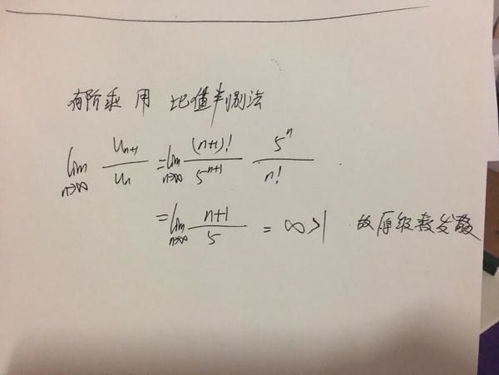 有阶乘 用 比值判别法
lim n→∞ u_{n+1}/u_n = lim n→∞ (n+1)!/5^{n+1} 5^n/n!
= lim n→∞ (n+1)/5 = ∞>1 故原级数发散